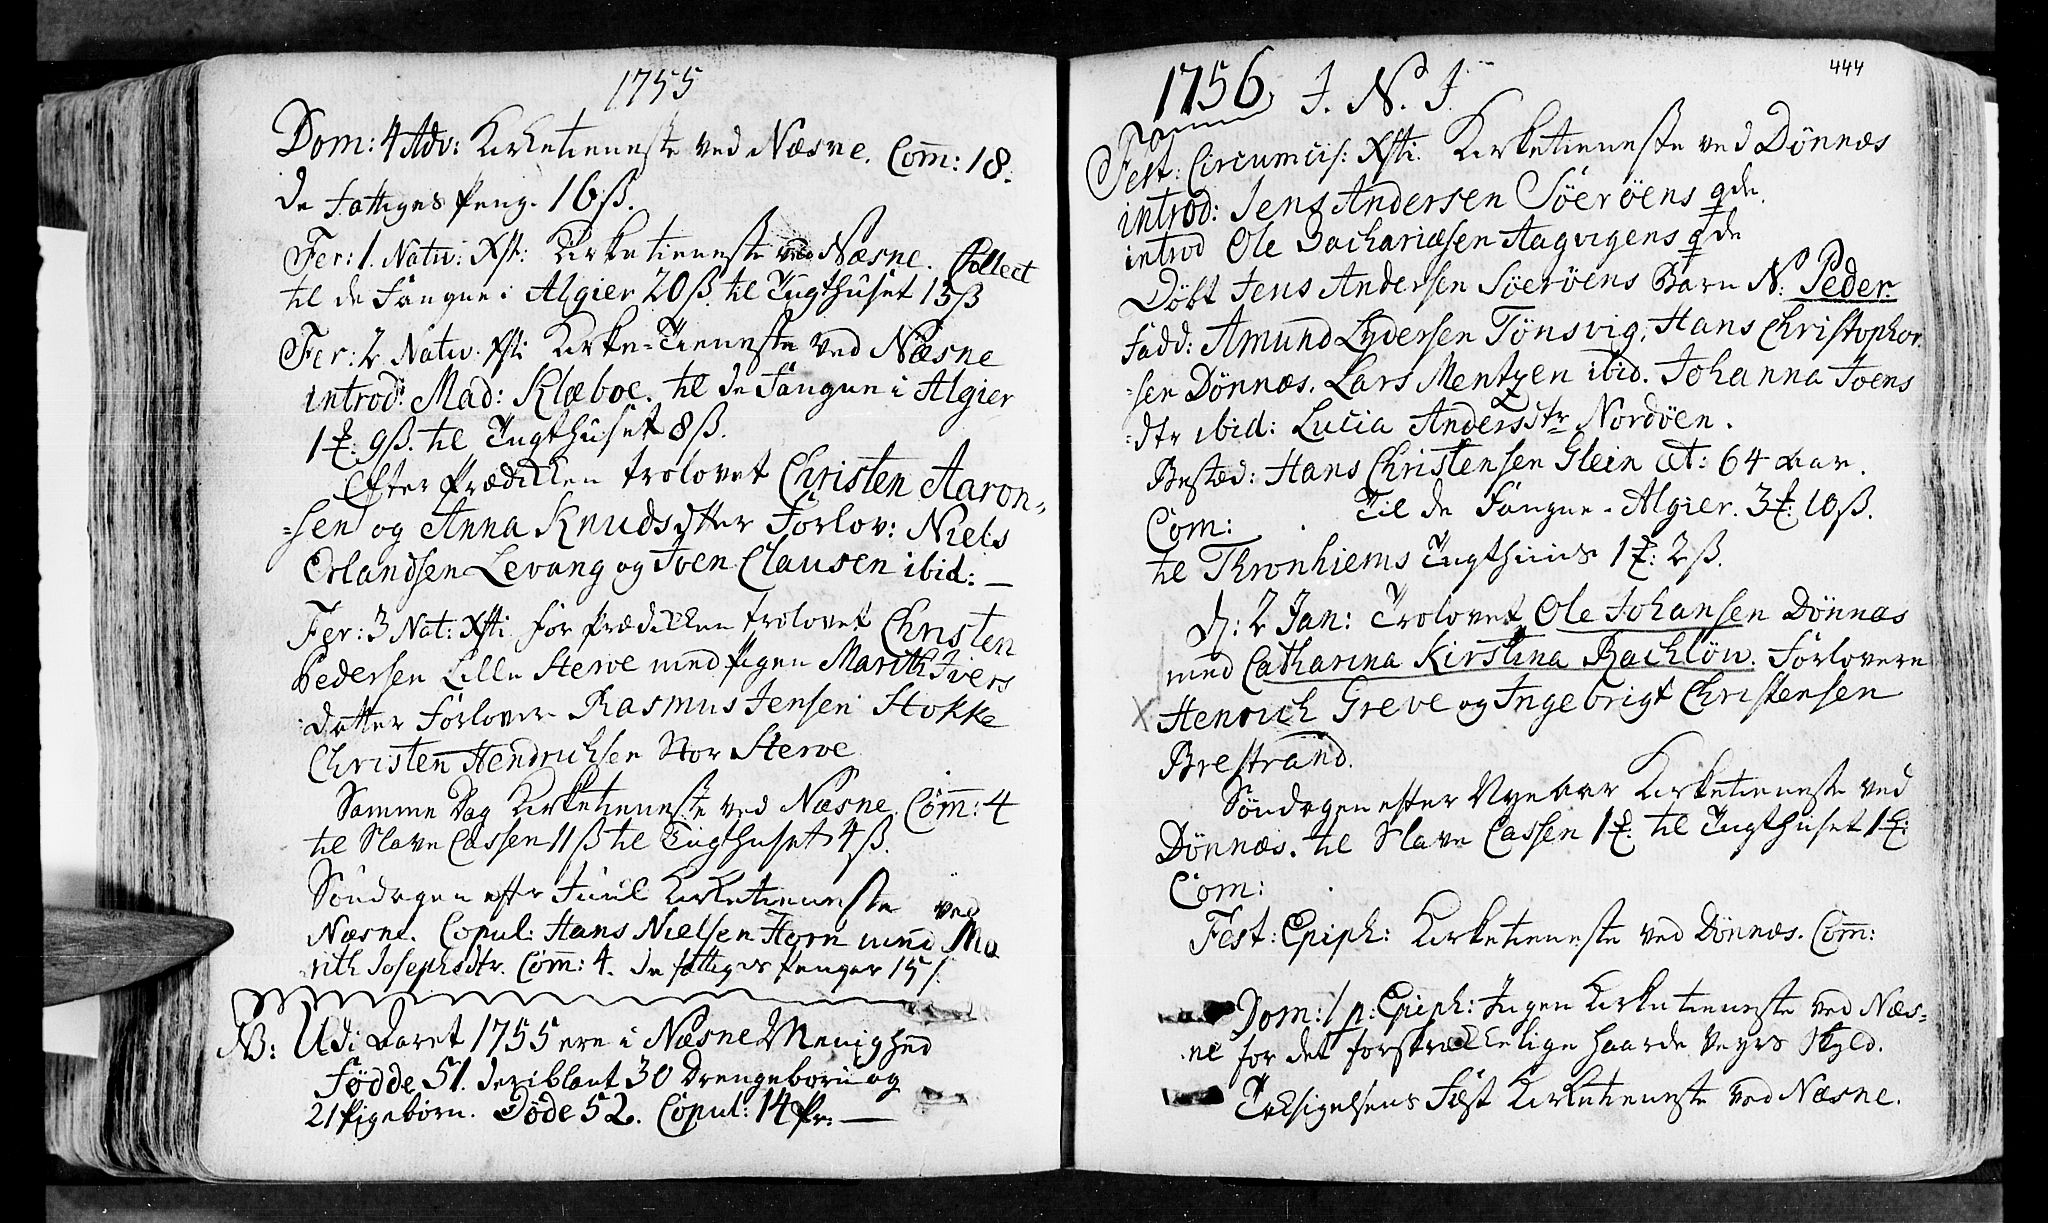 1755
Dom: 4 Adv: Kirketieneste ved Næsne. Com̄: 18.
de fattiges Peng. 16 ß.
Fer: 1. Nativ: Xsti: Kirketieneste ved Næsne. Collect
til de Fangne i Algier 20 ß. til Tugthuset 15 ß
Fer: 2 Nativ. Xsti Kirke-Tieneste ved Næsne
introd: Mad: Klæboe. til de Fangne i Algier
1 : 9 ß. til Tugthuset 8 ß.
Efter Prædikken trolovet Christen Aaron-
-sen og Anna Knudsdtter Forlov: Niels
Erlandsen Levang og Iven Clausen ibid: —
Fer: 3 Nat: Xsti for Prædikken trolovet Christen
Pedersen Lille Sterve med Pigen Marith Ivers
datter Forlover Rasmus Jensen Hokke
Christen Hendrichsen Stor Sterve
Samme Dag Kirketieneste ved Næsne Com̄: 4
til Slave Cassen 11 ß til Tugthuset 4 ß.
Søndagen efter Juul Kirketieneste ved
Næsne. Copul: Hans Nielsen Horn med Ma
rith Josephsdtr. Com̄: 4. de fattiges Penger 15 ß.
NB: Udi Aaret 1755 ere i Næsne Menighed
Fødde 51. deriblant 30 Drengebørn og
21 Pigebørn. Døde 52. Copul: 14 Pr. —
444
1756 J. N. J.
Fest: Circumcis: Xsti. Kirketieneste ved Dønnæs
introd: Jens Andersen Söeröens qde.
introd Ole Zachariæsen Aagvigens qde
Döbt Jens Andersen Söeröens Barn N. Peder.
Fadd: Amund Lydersen Tönsvig, Hans Christophor
-sen Dönnæs. Lars Mentzen ibid. Johanna Joens
-dtr ibid: Lucia Andersdtr Nordöen.
Bested: Hans Christensen Glein æt: 64 aar.
Com: Til de Fangne Algier. 3 : 10 ß.
til Thronhiems Tugthuus 1 : 2 ß.
D: 2 Jan: Trolovet Ole Johansen Dönnæs
med Catharina Kirstina Rachlöw. Forlovere
Henrich Greve og Ingebrigt Christensen
Brestrand.
Söndagen efter Nyeaar Kirketieneste ved
Dönnæs. til Slave Cassen 1 . til Tugthuset 1 :
Com:
Fest: Epiph: Kirketieneste ved Dönnæs. Com̄:
Dom: 1 p: Epiph: Ingen Kirketieneste ved Næs-
ne for det forskrækkelige haarde Veyrs Skyld.
Taksigelsens Fæst Kirketieneste ved Næsne.